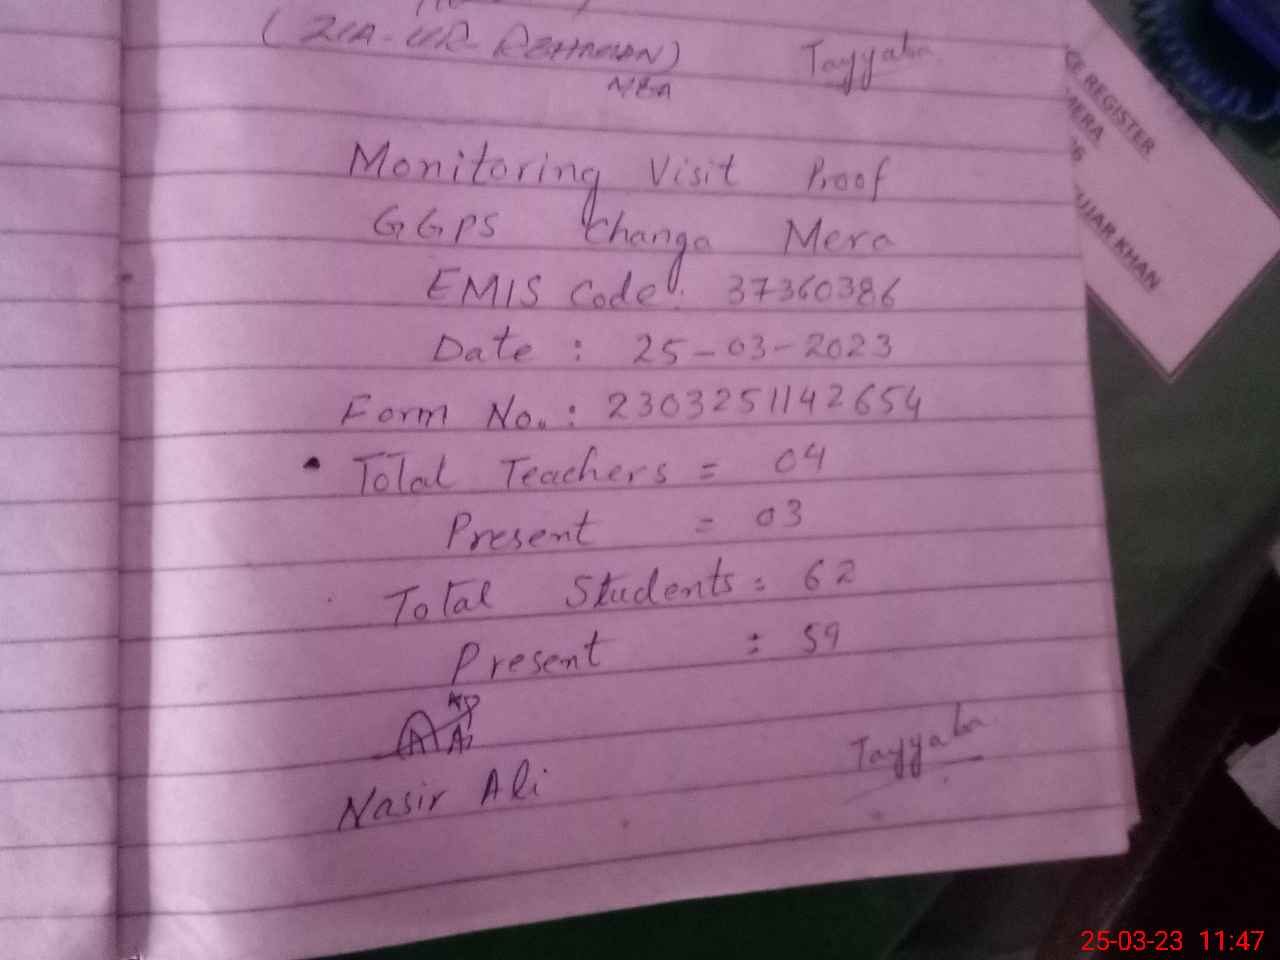 (ZIA-UR-REHMAN)
Tayyaba
Monitoring Visit Proof
GGPS Changa Mera
EMIS Code: 37360386
Date : 25-03-2023
Form No. : 2303251142654
• Total Teachers = 04
Present = 03
Total Students = 62
Present : 59
Nasir Ali
Tayyaba
CE REGISTER
MERA
UJAR KHAN
25-03-23 11:47